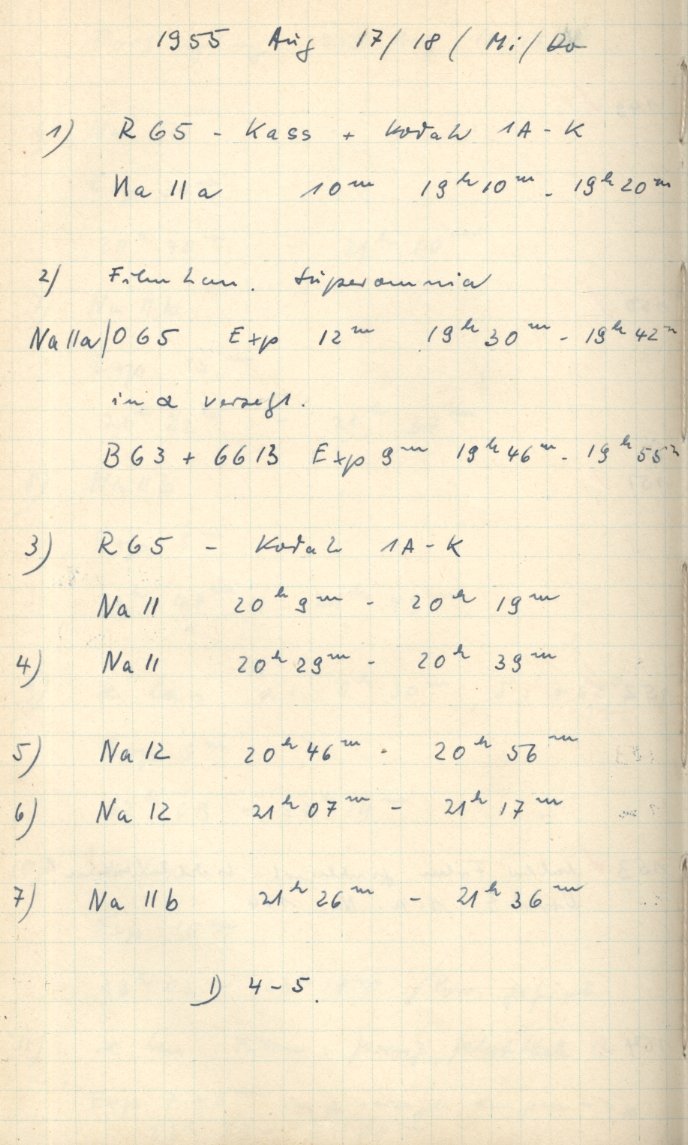 1955 Aug 17/18 (Mi/Do
1) RG5 - Kass + Kodak 1A-K
Na 11a 10m 19h10m - 19h20m
2) Superomnia
Na11a/OG5 Exp 12m 19h30m - 19h42m
in α versetzt.
BG3 + GG13 Exp 9m 19h46m - 19h55m
3) RG5 - Kodak 1A-K
Na 11 20h9m - 20h 19m
4) Na 11 20h29m - 20h 39m
5) Na 12 20h46m - 20h 56m
6) Na 12 21h07m - 21h17m
7) Na 11b 21h26m - 21h36m
4-5.